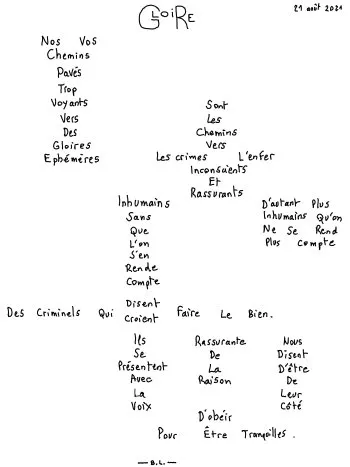 GLOIRE
21 août 2021
Nos Vos
Chemins
Pavés
Trop
Voyants
Vers
Des
Gloires
Ephémères
Sont
Les
Chemins
Vers
Les crimes L'enfer
Inconscients
Et
Rassurants
Inhumains
Sans
Que
L'on
S'en
Rende
Compte
D'autant Plus
Inhumains Qu'on
Ne Se Rend
Plus Compte
Des Criminels Qui Disent
Croient Faire Le Bien.
Ils
Se
Présentent
Avec
La
Voix
Rassurante
De
La
Raison
Nous
Disent
D'être
De
Leur
Côté
D'obéir
Pour Être Tranquilles.
— B.L. —